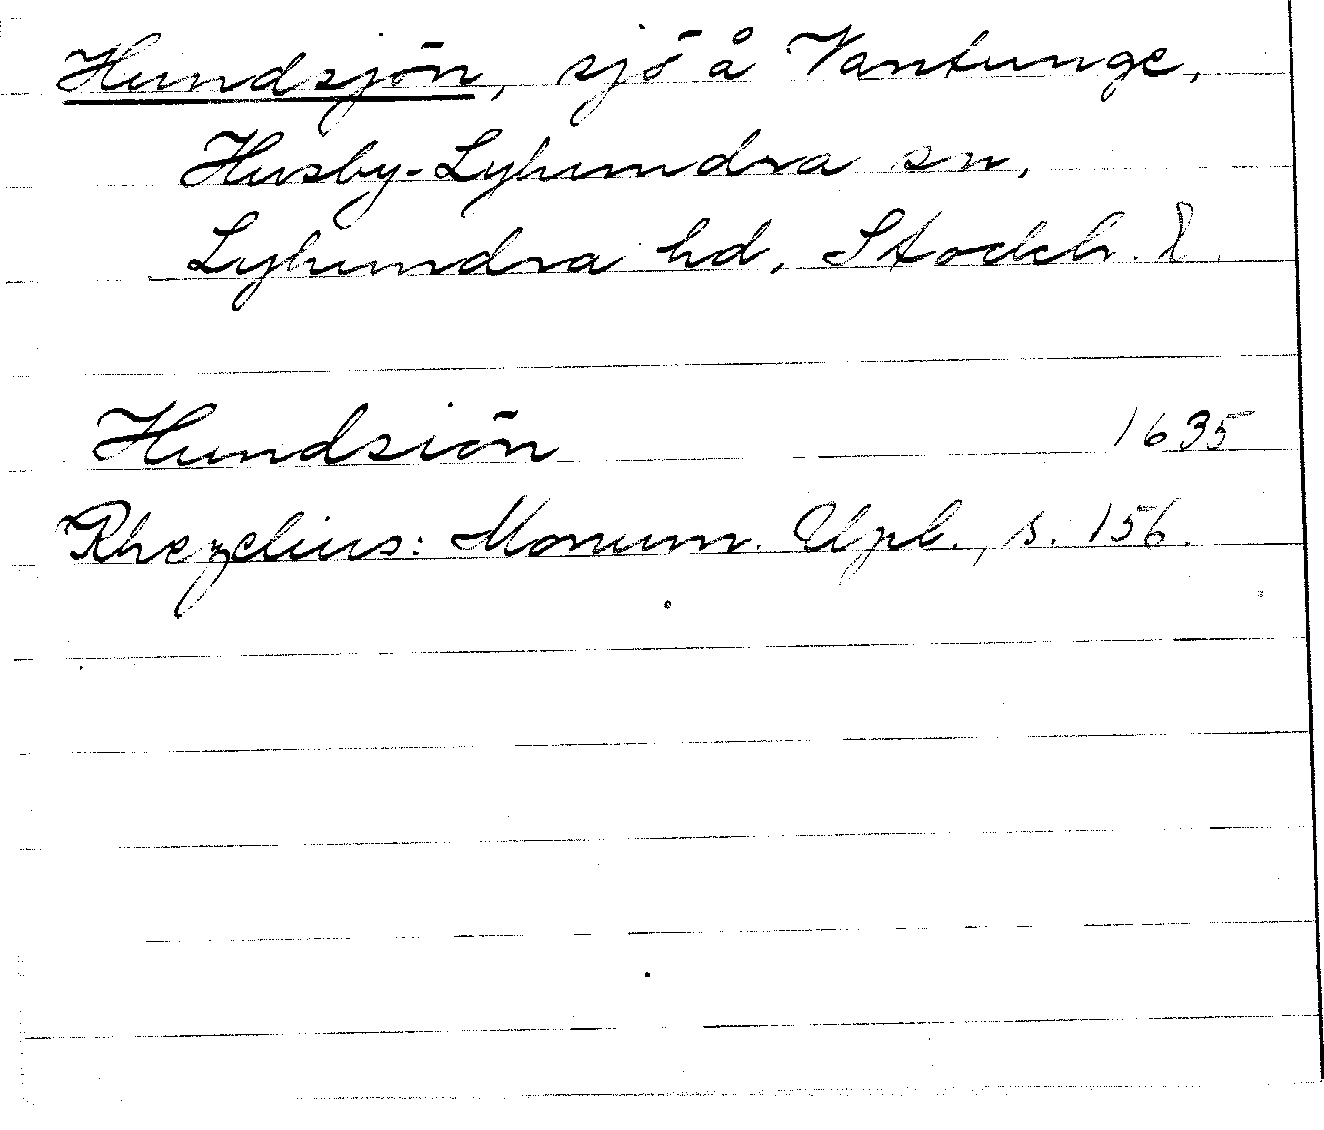 Hundsjön, sjö å Vantunge,
Husby-Lyhundra sn,
Lyhundra hd, Stockh. l.
Hundsiön 1635
Rhezelius: Monum. Upl., s. 156.